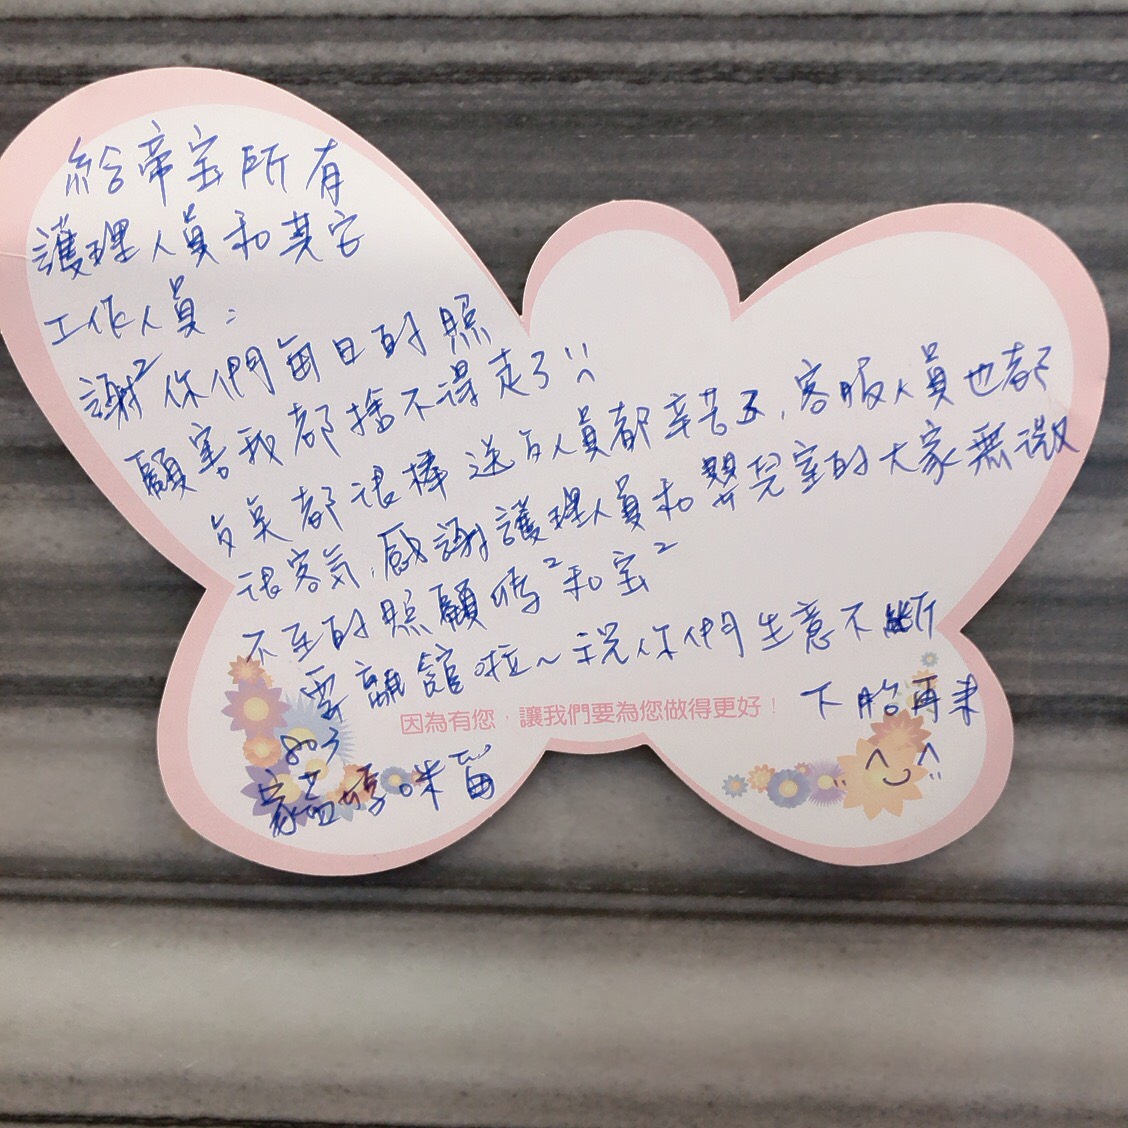 給帝宝所有
護理人員和其它
工作人員：
謝²你們每日的照
顧害我都捨不得走了!!
真都很棒送人員都辛苦了，客服人員也都
很客気，感謝護理人員和嬰兒室的大家無微
不至的照顧媽²和宝²
要離館啦~祝你們生意不斷
下胎再來
因為有您，讓我們要為您做得更好！
803
媽咪留